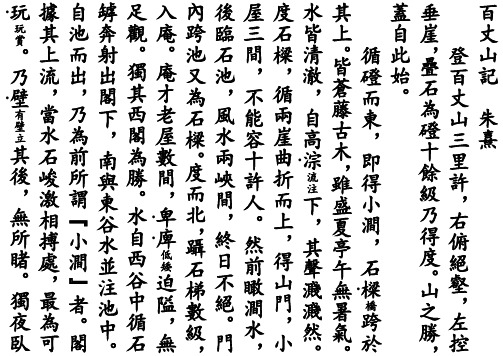 百丈山記　朱熹
登百丈山三里許，右俯絕壑，左控
垂崖，疊石為磴十餘級乃得度。山之勝，
蓋自此始。
循磴而東，即得小澗，石樑橋跨於
其上。皆蒼藤古木，雖盛夏亭午無暑氣。
水皆清澈，自高淙流注下，其聲濺濺然。
度石樑，循兩崖曲折而上，得山門，小
屋三間，不能容十許人。然前瞰澗水，
後臨石池，風水兩峽間，終日不絕。門
內跨池又為石樑。度而北，躡石梯數級，
入庵。庵才老屋數間，卑庳低矮迫隘，無
足觀。獨其西閣為勝。水自西谷中循石
罅奔射出閣下，南與東谷水並注池中。
自池而出，乃為前所謂『小澗』者。閣
據其上流，當水石峻激相搏處，最為可
玩玩賞。乃壁有壁立其後，無所睹。獨夜臥